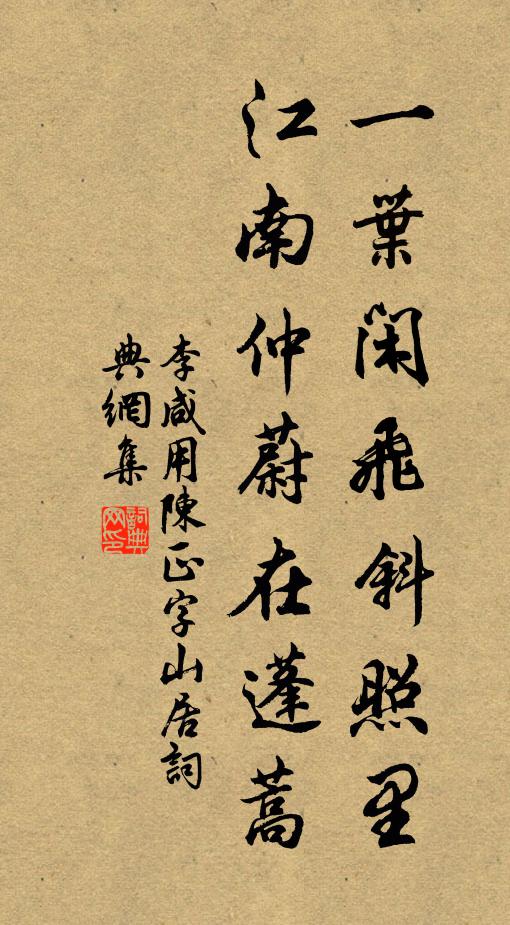 一葉閑飛斜照里
江南仲蔚在蓬蒿
李咸用陳正字山居詞
典網集
詞典
网印